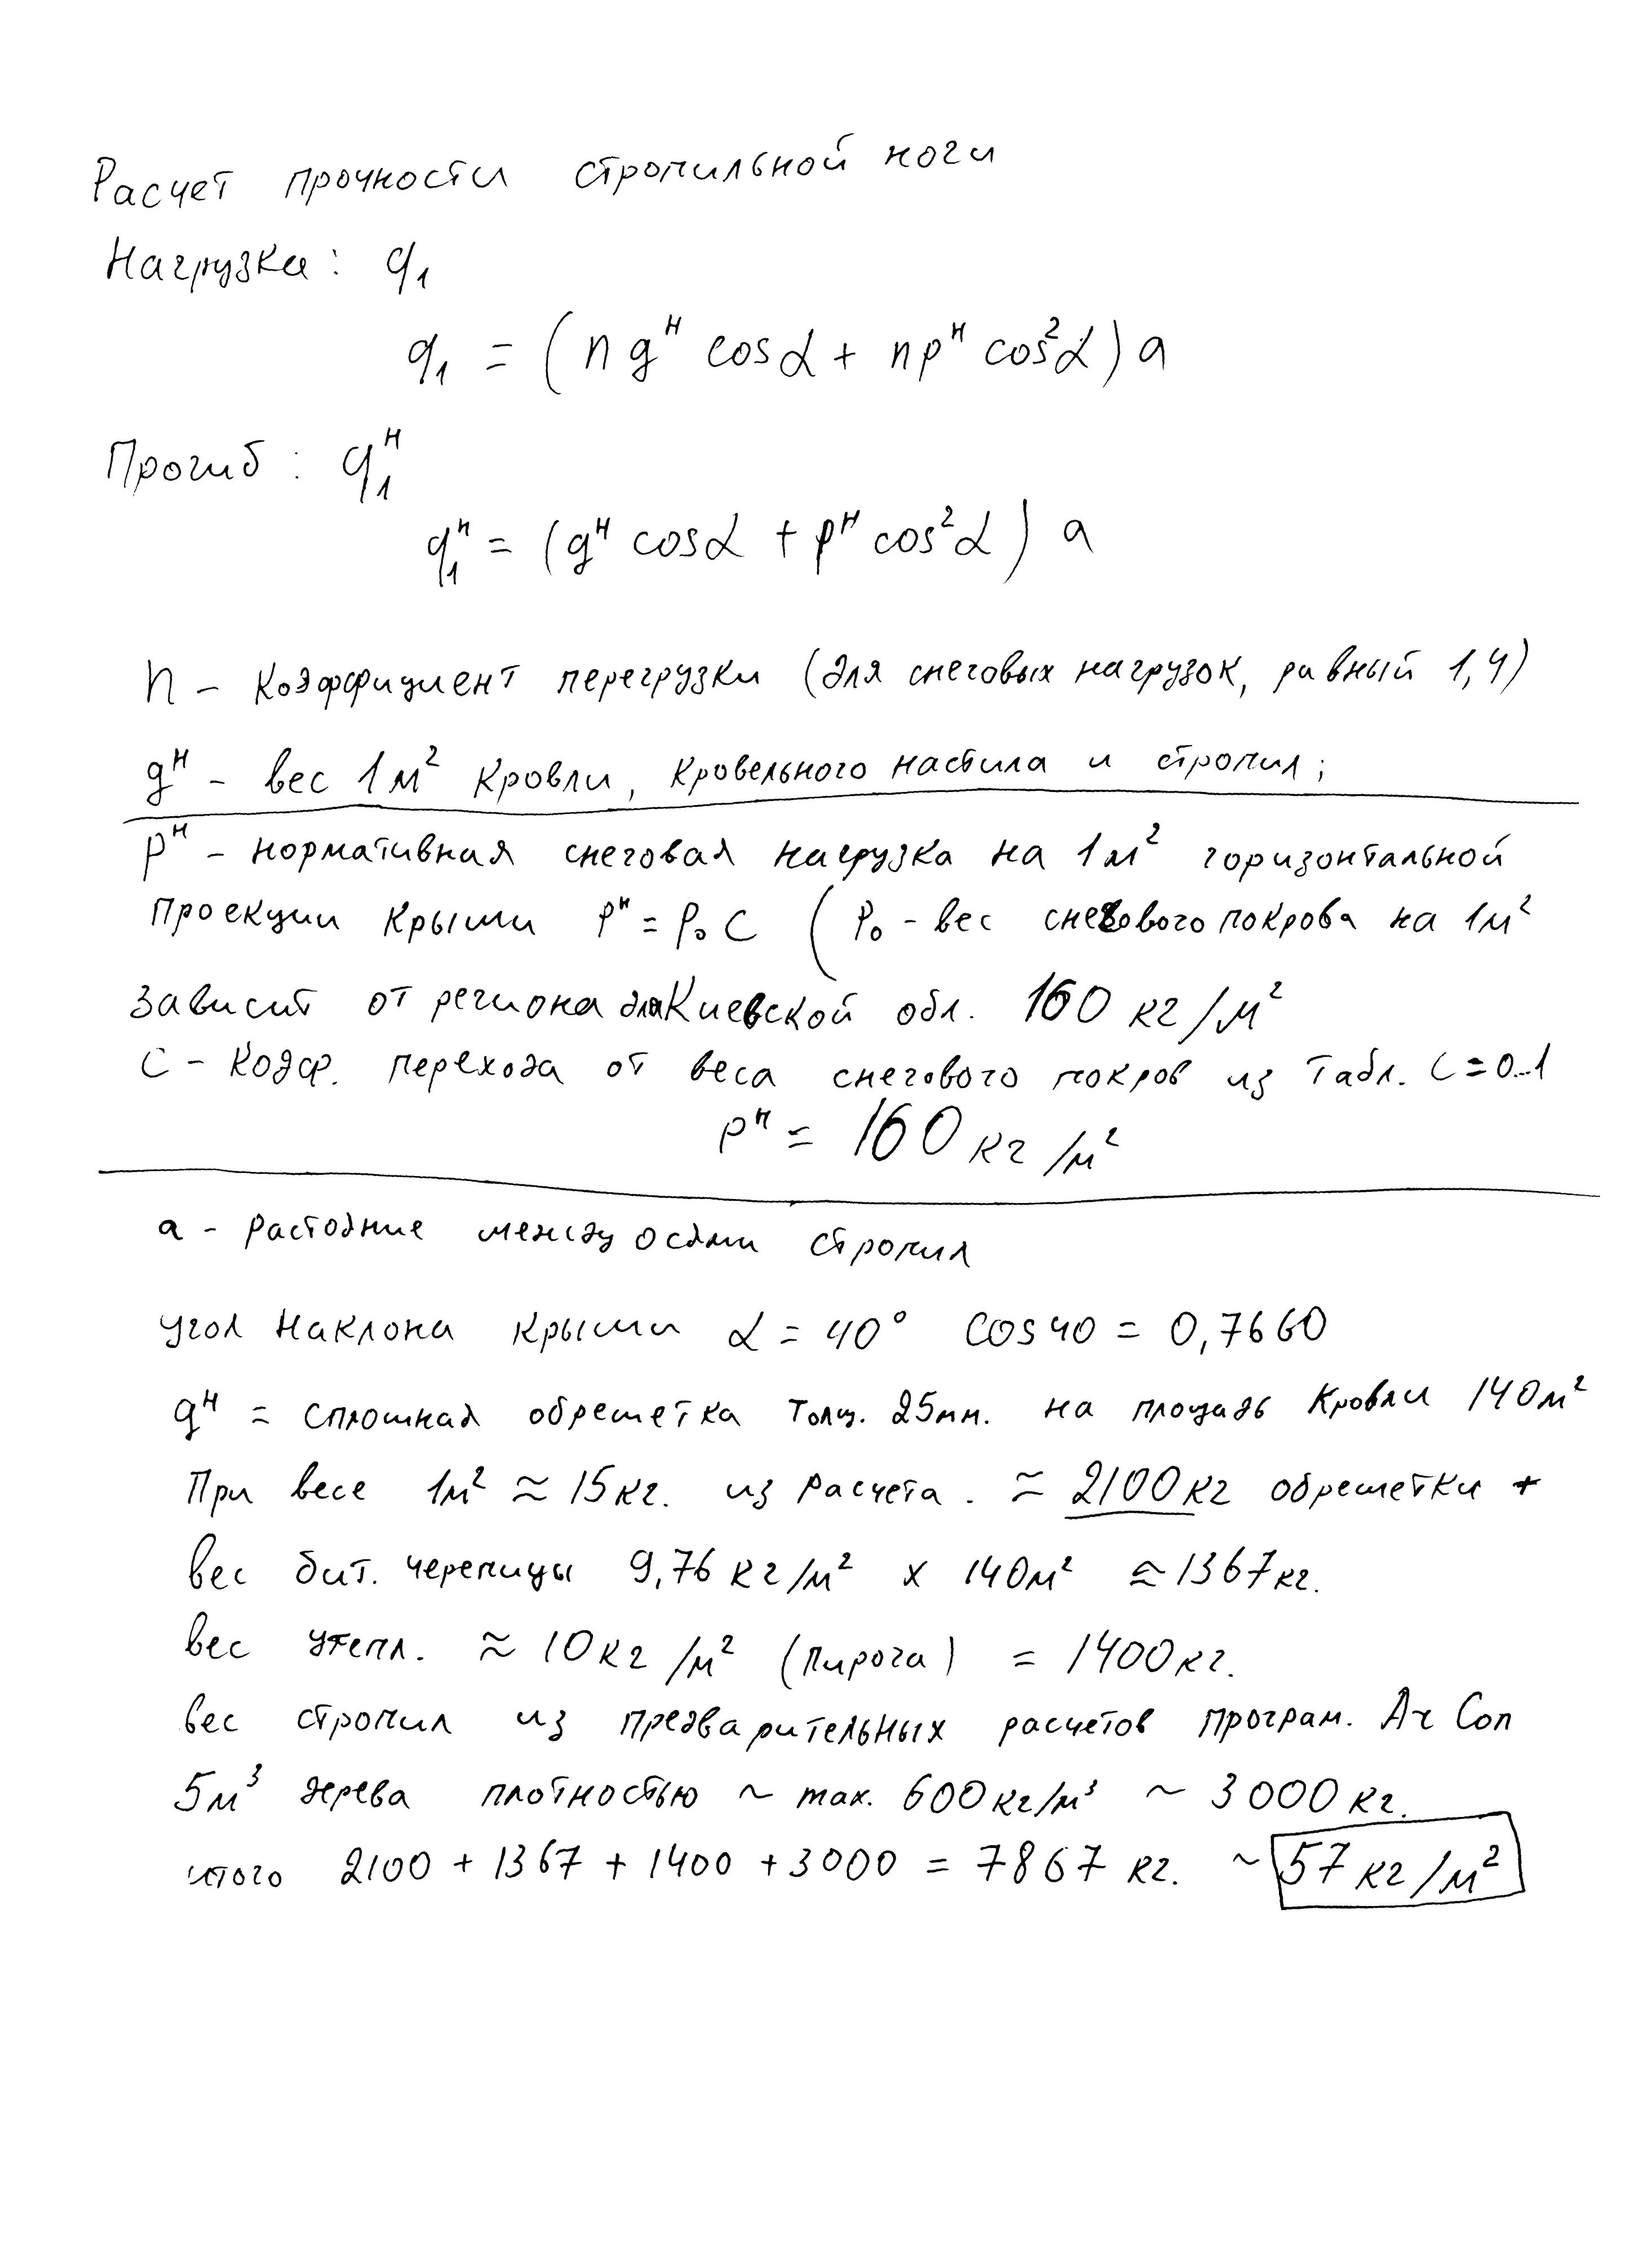 Расчет прочности стропильной ноги
Нагрузка: q₁
q₁ = (n gᴴ cosα + npᴴ cos²α) a
Прогиб: q₁ᴴ
q₁ᴴ = (gᴴ cosα + pᴴ cos²α) a
n - коэффициент перегрузки (для снеговых нагрузок, равный 1,4)
gᴴ - вес 1м² кровли, кровельного настила и стропил;
pᴴ - нормативная снеговая нагрузка на 1м² горизонтальной
проекции крыши pᴴ = p₀ C (p₀ - вес снегового покрова на 1м²
зависит от региона для Киевской обл. 160 кг/м²
C - коэф. перехода от веса снегового покров из табл. C = 0..1
pᴴ = 160 кг/м²
a - растояние между осями стропил
угол наклона крыши α = 40° cos40 = 0,7660
gᴴ = сплошная обрешетка толщ. 25мм. на площадь кровли 140м²
При весе 1м² ≈ 15кг. из расчета. ≈ 2100кг обрешетки +
вес бит. черепицы 9,76 кг/м² x 140м² ≈ 1367кг.
вес утепл. ≈ 10кг/м² (пирога) = 1400кг.
вес стропил из предварительных расчетов програм. Ar Con
5м³ дерева плотностью ~ max. 600кг/м³ ~ 3000кг.
итого 2100 + 1367 + 1400 + 3000 = 7867 кг. ~ 57 кг/м²